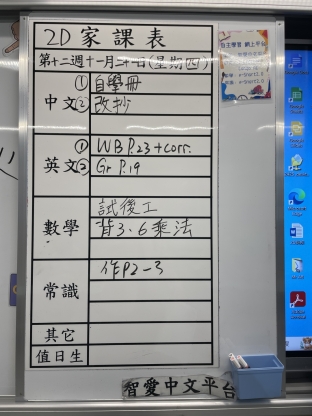 2D家課表
第十二週十一月二十一日(星期四)
中文
①自學冊
②改抄
英文
①WB P.23+corr.
②Gr P.19
數學
試後工
背3、6乘法
常識
作P2-3
其它
值日生
自主學習 網上平台
智愛中文平台